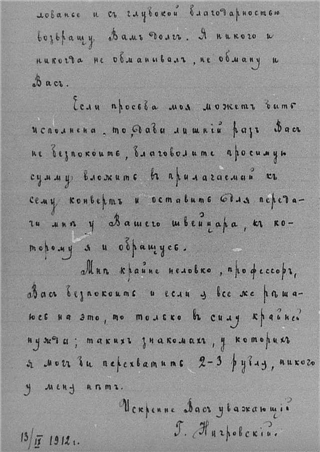 лованье и съ глубокой благодарностью
возвращу Вамъ долгъ. Я никого и
никогда не обманывалъ, не обману и
Васъ.
Если просьба моя можетъ быть
исполнена, то, дабы лишній разъ Васъ
не безпокоить, благоволите просимую
сумму вложить въ прилагаемый къ
сему конвертъ и оставить для переда-
чи мнѣ у Вашего швейцара, къ ко-
торому я и обращусь.
Мнѣ крайне неловко, профессоръ,
Васъ безпокоить и если я все же рѣша-
юсь на это, то только въ силу крайней
нужды; такихъ знакомыхъ, у которыхъ
я могъ бы перехватить 2-3 рубля, никого
у меня нѣтъ.
Искренне Васъ уважающій
Г.
13/IX 1912 г.